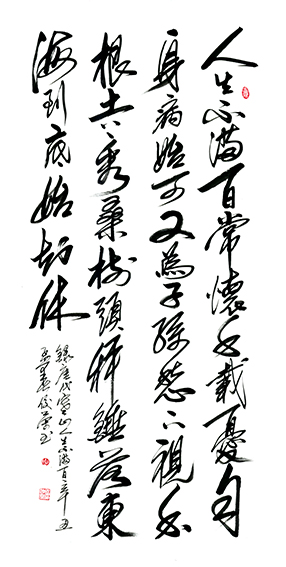 人生不滿百常懷千載憂自
身病始可又為子孫愁下視禾
根土上看桑樹頭秤錘落東
海到底始知休
錄唐代寒山人生不滿百辛丑
書